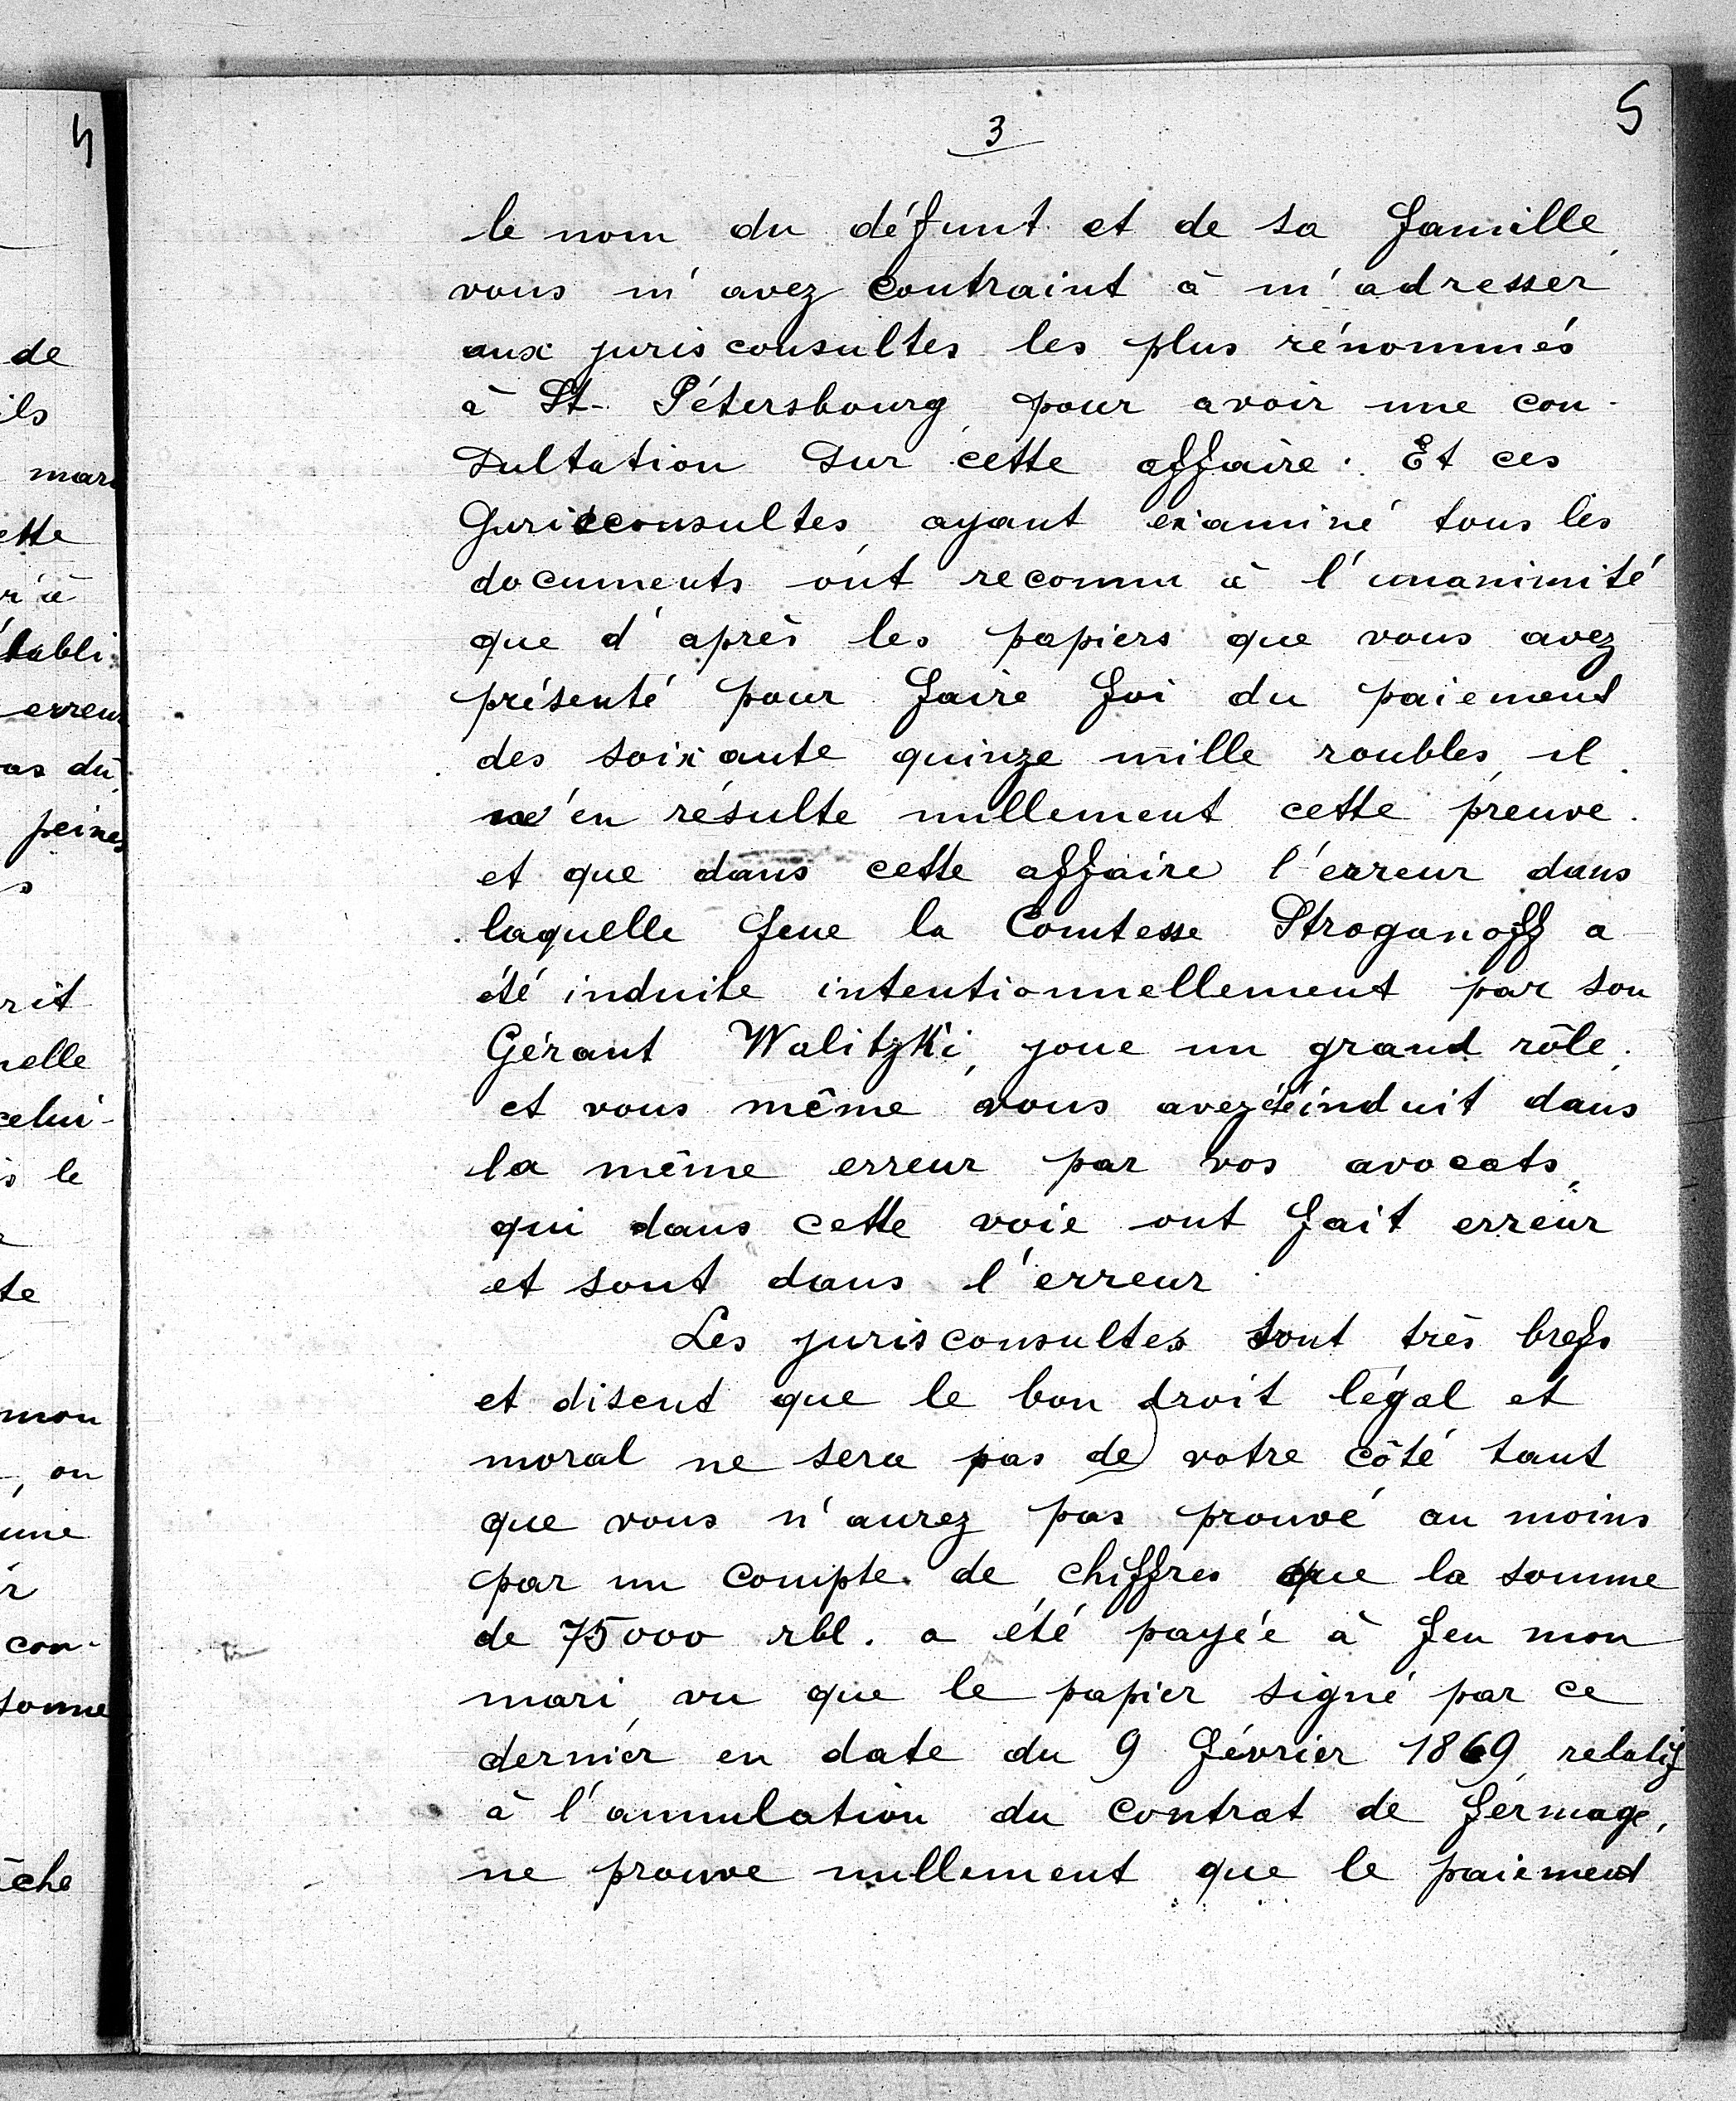 4
de
ils
mari
ette
r'à
établi-
erreur
as du
peines
s
rit
nelle
celui-
s le
te
mon
, on
une
r
con-
somme
êche
3
5
le nom du défunt et de sa famille,
vous m'avez contraint à m'adresser
aux jurisconsultes les plus rénommés
à St. Pétersbourg pour avoir une con-
sultation sur cette affaire. Et ces
Jurisconsultes, ayant examiné tous les
documents ont reconnu à l'unanimité
que d'après les papiers que vous avez
présenté pour faire foi du paiement
des soixante quinze mille roubles, il
n'en résulte nullement cette preuve.
et que dans cette affaire l'erreur dans
laquelle feue la Comtesse Stroganoff a
été induite intentionnellement par son
Gérant Walitzki, joue un grand rôle,
et vous même vous avez été induit dans
la même erreur par vos avocats,
qui dans cette voie ont fait erreur
et sont dans l'erreur.
Les jurisconsultes sont très brefs
et disent que le bon droit légal et
moral ne sera pas de votre côté tant
que vous n'aurez pas prouvé au moins
par un compte de chiffres que la somme
de 75000 rbl. a été payée à feu mon
mari, vu que le papier signé par ce
dernier en date du 9 Février 1869, relatif
à l'annulation du contrat de fermage,
ne prouve nullement que le paiement